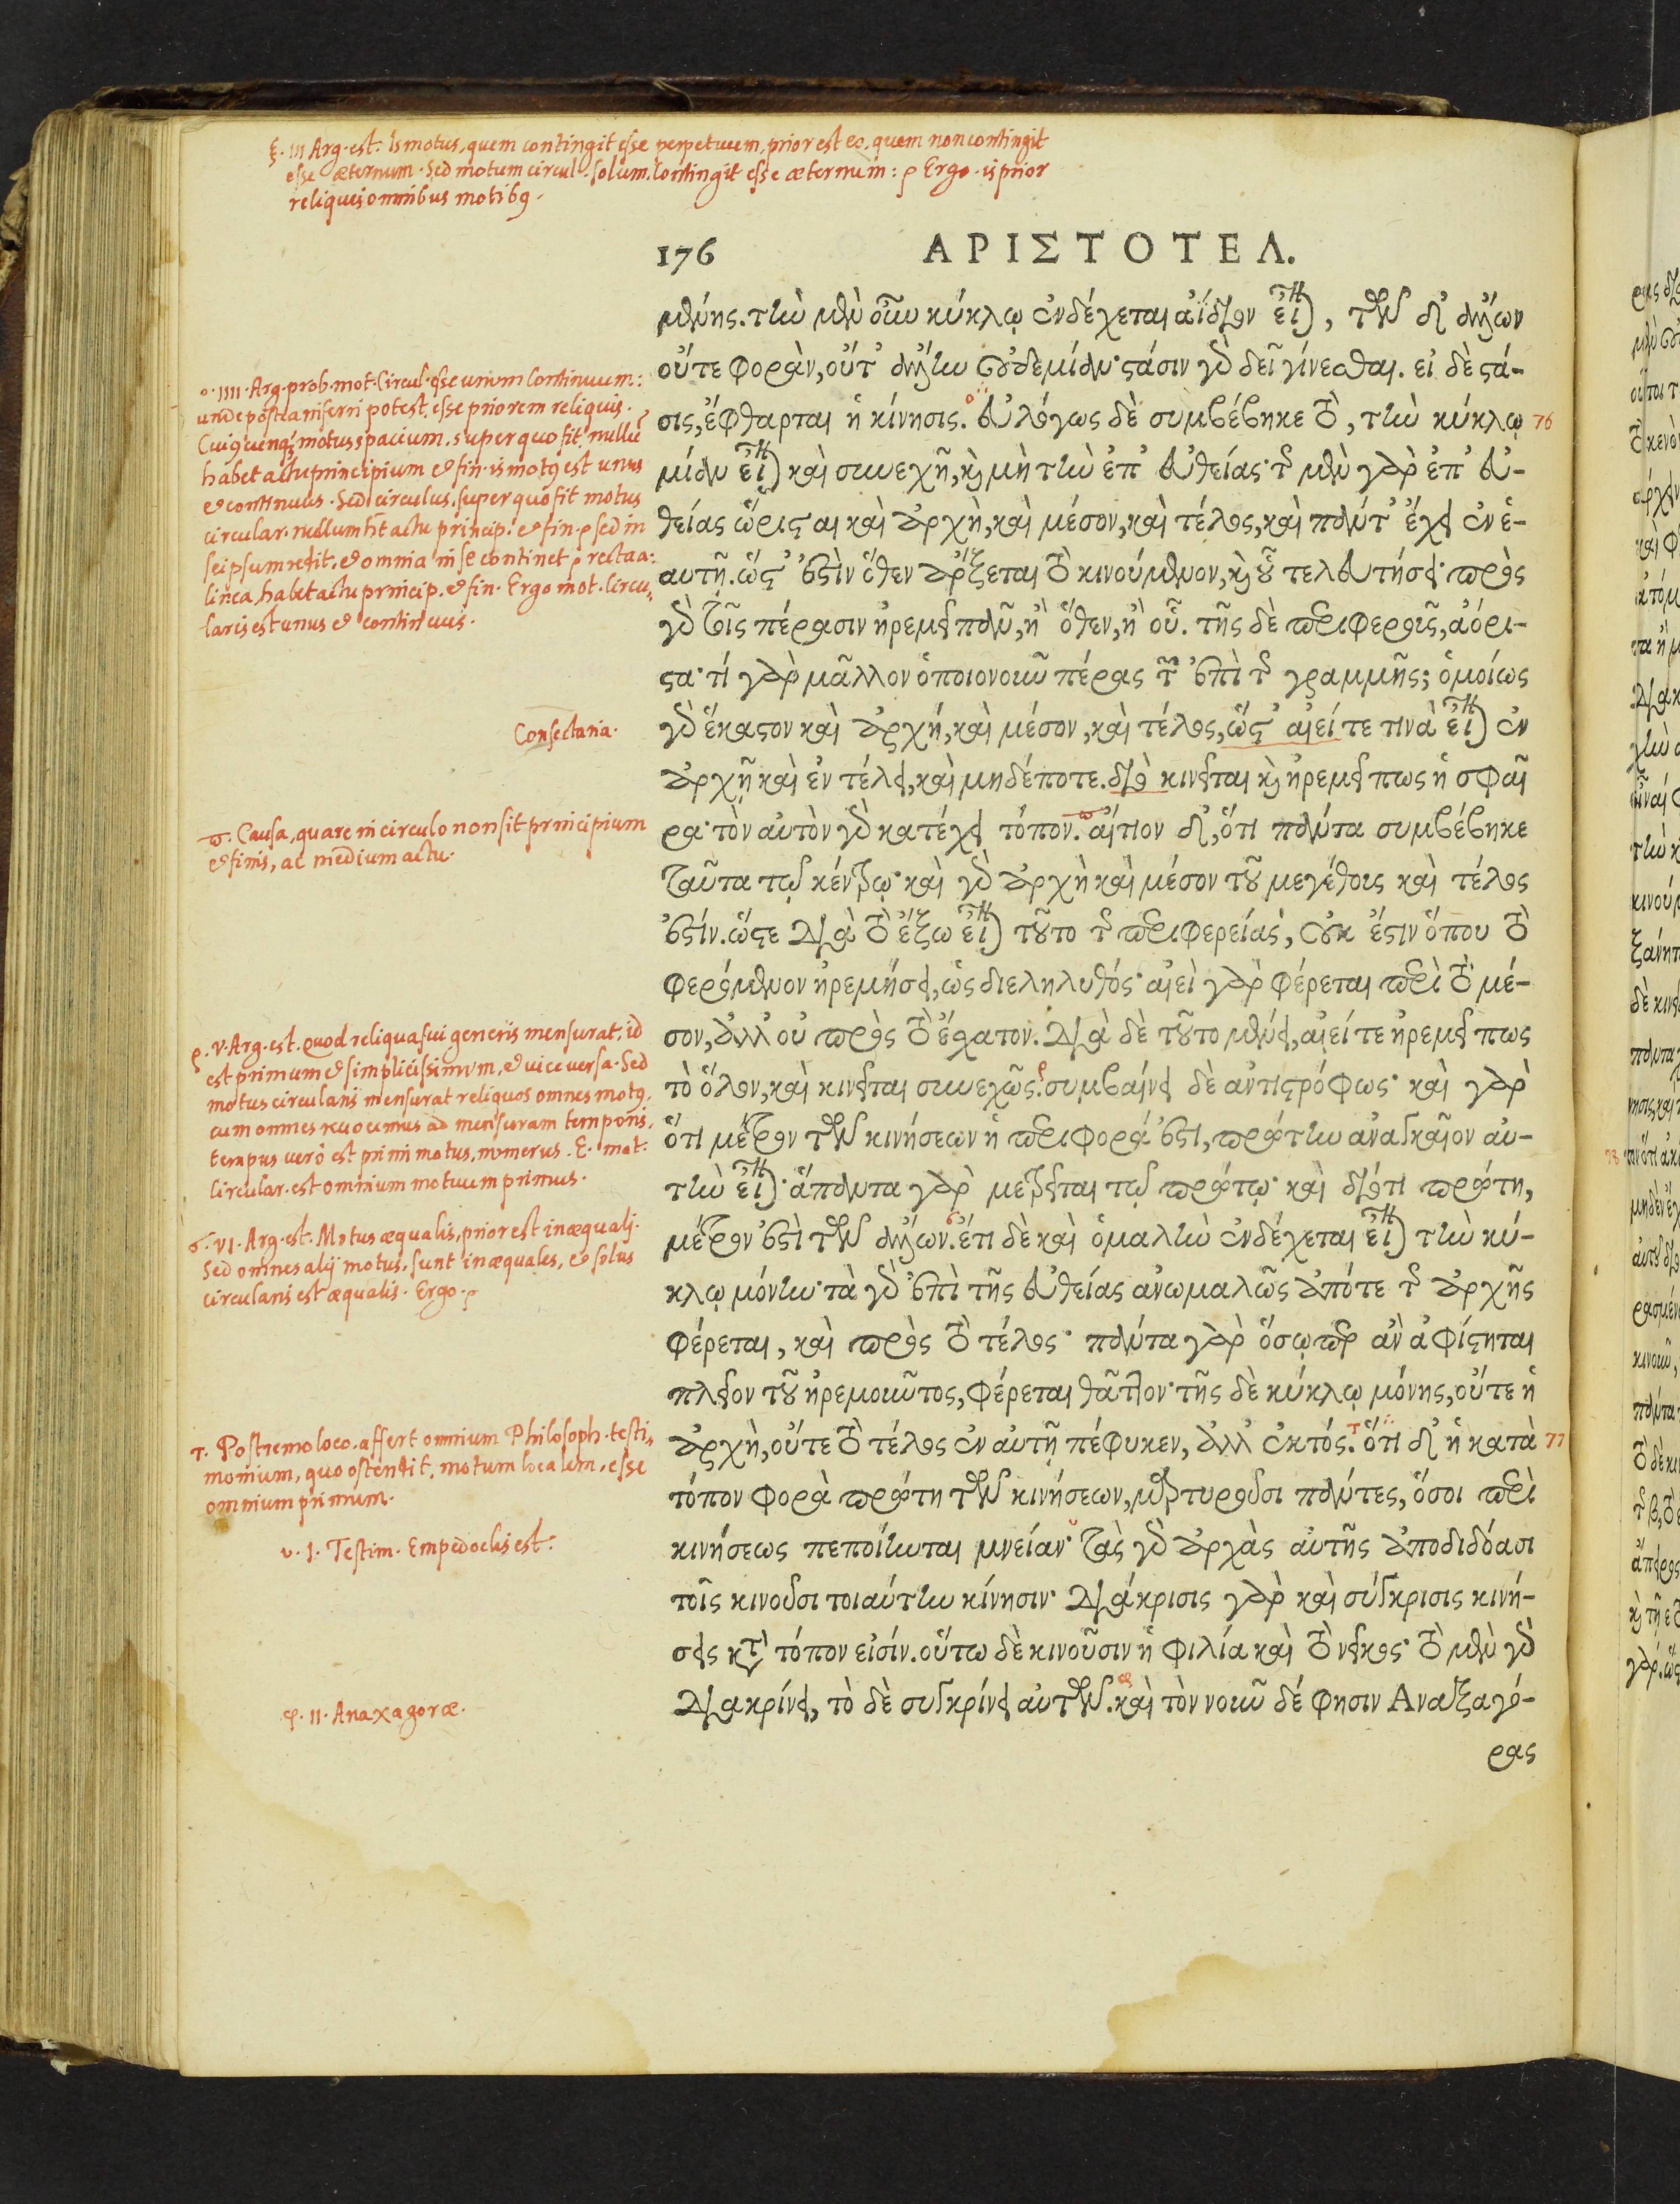 ξ. III Arg. est. Is motus, quem contingit esse perpetuum, prior est eo, quem non contingit
esse æternum. Sed motum circul. solum. contingit esse æternum: ρ Ergo. is prior
reliquis omnibus motibꝰ.
176 ΑΡΙΣΤΟΤΕΛ.
μένης. τὴν μὲν οὖν κύκλῳ ἐνδέχεται ἀΐδιον εἶναι, τῶν δ' ἄλλων
οὔτε φορὰν, οὔτ' ἄλλην οὐδεμίαν· στάσιν γὰρ δεῖ γίνεσθαι. εἰ δὲ στά-
σις, ἔφθαρται ἡ κίνησις. εὐλόγως δὲ συμβέβηκε τὸ, τὴν κύκλῳ 76
μίαν εἶναι καὶ συνεχῆ, καὶ μὴ τὴν ἐπ' εὐθείας· τῆς μὲν γὰρ ἐπ' εὐ-
θείας ὥρισται καὶ ἀρχὴ, καὶ μέσον, καὶ τέλος, καὶ πάντ' ἔχει ἐν ἑ-
αυτῇ. ὥστ' ἐστὶν ὅθεν ἄρξεται τὸ κινούμενον, καὶ οὗ τελευτήσει· πρὸς
γὰρ τοῖς πέρασιν ἠρεμεῖ πᾶν, ἢ ὅθεν, ἢ οὗ. τῆς δὲ περιφεροῦς, ἀόρι-
στα· τί γὰρ μᾶλλον ὁποιονοῦν πέρας τῶν ἐπὶ τῆς γραμμῆς; ὁμοίως
γὰρ ἕκαστον καὶ ἀρχή, καὶ μέσον, καὶ τέλος, ὥστ' αἰεί τε τινὰ εἶναι ἐν
ἀρχῇ καὶ ἐν τέλει, καὶ μηδέποτε. διὸ κινεῖται καὶ ἠρεμεῖ πως ἡ σφαῖ
ρα· τὸν αὐτὸν γὰρ κατέχει τόπον. αἴτιον δ', ὅτι πάντα συμβέβηκε
ταῦτα τῷ κέντρῳ· καὶ γὰρ ἀρχὴ καὶ μέσον τοῦ μεγέθους καὶ τέλος
ἐστίν. ὥστε διὰ τὸ ἔξω εἶναι τοῦτο τῆς περιφερείας, οὐκ ἔστιν ὅπου τὸ
φερόμενον ἠρεμήσει, ὡς διεληλυθός· αἰεὶ γὰρ φέρεται περὶ τὸ μέ-
σον, ἀλλ' οὐ πρὸς τὸ ἔσχατον. διὰ δὲ τοῦτο μένει, αἰεί τε ἠρεμεῖ πως
τὸ ὅλον, καὶ κινεῖται συνεχῶς. συμβαίνει δὲ ἀντιστρόφως· καὶ γὰρ
ὅτι μέτρον τῶν κινήσεων ἡ περιφορά ἐστι, πρώτην ἀναγκαῖον αὐ-
τὴν εἶναι· ἅπαντα γὰρ μετρεῖται τῷ πρώτῳ· καὶ διότι πρώτη,
μέτρον ἐστὶ τῶν ἄλλων. ἔτι δὲ καὶ ὁμαλὴν ἐνδέχεται εἶναι τὴν κύ-
κλῳ μόνην· τὰ γὰρ ἐπὶ τῆς εὐθείας ἀνωμαλῶς ἀπό τε τῆς ἀρχῆς
φέρεται, καὶ πρὸς τὸ τέλος· πάντα γὰρ ὅσῳπερ ἂν ἀφίστηται
πλεῖον τοῦ ἠρεμοῦντος, φέρεται θᾶττον· τῆς δὲ κύκλῳ μόνης, οὔτε ἡ
ἀρχὴ, οὔτε τὸ τέλος ἐν αὐτῇ πέφυκεν, ἀλλ' ἐκτός. ὅτι δ' ἡ κατὰ 77
τόπον φορὰ πρώτη τῶν κινήσεων, μαρτυροῦσι πάντες, ὅσοι περὶ
κινήσεως πεποίηνται μνείαν· τὰς γὰρ ἀρχὰς αὐτῆς ἀποδιδόασι
τοῖς κινοῦσι τοιαύτην κίνησιν· διάκρισις γὰρ καὶ σύγκρισις κινή-
σεις κατὰ τόπον εἰσίν. οὕτω δὲ κινοῦσιν ἡ φιλία καὶ τὸ νεῖκος· τὸ μὲν γὰρ
διακρίνει, τὸ δὲ συγκρίνει αὐτῶν. καὶ τὸν νοῦν δέ φησιν Αναξαγό-
ρας
ο. IIII. Arg. prob. mot. Circul. esse unum Continuum:
unde postea inferri potest, esse priorem reliquis.
Cuiꝰcunq; motus spacium, super quo fit, nullū
habet actu principium et fin. is motꝰ est unus
et continuus. Sed circulus, super quo fit motus
circular. nullum ht actu princip. et fin. ρ sed in
seipsum redit. et omnia in se continet ρ recta a:
linea habet actu princip. et fin. Ergo mot. Circu,
laris est unus et continuus.
Consectaria.
π. Causa, quare in circulo non sit principium
et finis, ac medium actu.
ρ. V. Arg. est. quod reliqua sui generis mensurat, id
est primum et simplicissimum, et vice versa. Sed
motus circularis mensurat reliquos omnes motꝰ.
cum omnes revocemus ad mensuram temporis,
tempus verò est primi motus, numerus. E. mot:
Circular. est omnium motuum primus.
σ. VI. Arg. est. Motus æqualis, prior est inæquali.
Sed omnes alij motus, sunt inæquales, et solus
circularis est æqualis. Ergo. ρ
τ. Postremo loco. affert omnium Philosoph. testi,
monium, quo ostendit, motum localem, esse
omnium primum.
υ. I. Testim. Empedoclis est.
φ. II. Anaxagoræ.